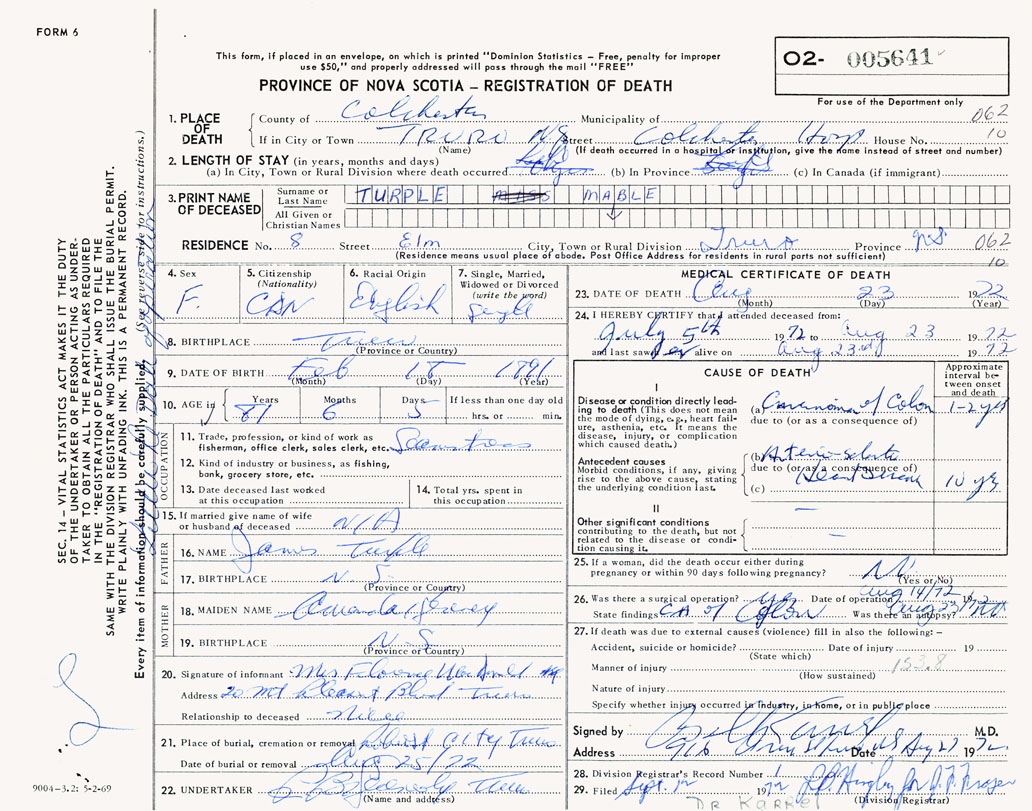 FORM 6
This form, if placed in an envelope, on which is printed "Dominion Statistics – Free, penalty for improper
use $50," and properly addressed will pass through the mail "FREE"
O2- 005641
For use of the Department only
PROVINCE OF NOVA SCOTIA – REGISTRATION OF DEATH
1. PLACE OF DEATH
County of Colchester Municipality of 062
If in City or Town TRURO N.S. Street Colchester Hosp House No. 10
(Name) (If death occurred in a hospital or institution, give the name instead of street and number)
2. LENGTH OF STAY (in years, months and days)
(a) In City, Town or Rural Division where death occurred (b) In Province (c) In Canada (if immigrant)
3. PRINT NAME OF DECEASED
Surname or Last Name TURPLE MISS MABLE
All Given or Christian Names
RESIDENCE No. 8 Street Elm City, Town or Rural Division Truro Province N.S. 062
(Residence means usual place of abode. Post Office Address for residents in rural parts not sufficient) 10
4. Sex F.
5. Citizenship (Nationality) CAN
6. Racial Origin English
7. Single, Married, Widowed or Divorced (write the word) Single
8. BIRTHPLACE Truro
(Province or Country)
9. DATE OF BIRTH Feb 18 1891
(Month) (Day) (Year)
10. AGE in Years Months Days If less than one day old
81 6 5 hrs. or min.
OCCUPATION
11. Trade, profession, or kind of work as
fisherman, office clerk, sales clerk, etc. Seamstress
12. Kind of industry or business, as fishing,
bank, grocery store, etc.
13. Date deceased last worked
at this occupation
14. Total yrs. spent in
this occupation
15. If married give name of wife
or husband of deceased N/A
FATHER
16. NAME James Turple
17. BIRTHPLACE N.S.
(Province or Country)
MOTHER
18. MAIDEN NAME Amanda
19. BIRTHPLACE N.S.
(Province or Country)
20. Signature of informant Mrs Florence
Address 20 Mt Pleasant Blvd Truro
Relationship to deceased Niece
21. Place of burial, cremation or removal City Truro
Date of burial or removal Aug 25/72
22. UNDERTAKER Truro
(Name and address)
MEDICAL CERTIFICATE OF DEATH
23. DATE OF DEATH Aug 23 1972
(Month) (Day) (Year)
24. I HEREBY CERTIFY that I attended deceased from:
July 5th 1972 to Aug 23 1972
and last saw her alive on Aug 23rd 1972
CAUSE OF DEATH
Approximate interval between onset and death
I
Disease or condition directly leading to death (This does not mean the mode of dying, e.g., heart failure, asthenia, etc. It means the disease, injury, or complication which caused death.)
(a) Carcinoma of Colon 1-2 yrs
due to (or as a consequence of)
Antecedent causes
Morbid conditions, if any, giving rise to the above cause, stating the underlying condition last.
(b)
due to (or as a consequence of)
(c) Heart Disease 10 yrs
II
Other significant conditions
contributing to the death, but not related to the disease or condition causing it.
25. If a woman, did the death occur either during
pregnancy or within 90 days following pregnancy? No
(Yes or No)
26. Was there a surgical operation? yes Date of operation Aug 14/72 19
State findings CA of Colon Was there an autopsy? No
27. If death was due to external causes (violence) fill in also the following: –
Accident, suicide or homicide? Date of injury 19
(State which)
Manner of injury 153.8
(How sustained)
Nature of injury
Specify whether injury occurred in industry, in home, or in public place
Signed by M.D.
Address 916 Date 1972
28. Division Registrar's Record Number
29. Filed Sept. 1972
(Division Registrar)
DR KARREL
SEC. 14 – VITAL STATISTICS ACT MAKES IT THE DUTY
OF THE UNDERTAKER OR PERSON ACTING AS UNDERTAKER TO OBTAIN ALL THE PARTICULARS REQUIRED
IN THE "REGISTRATION OF DEATH" AND TO FILE THE
SAME WITH THE DIVISION REGISTRAR WHO SHALL ISSUE THE BURIAL PERMIT.
WRITE PLAINLY WITH UNFADING INK. THIS IS A PERMANENT RECORD.
Every item of information should be carefully supplied. (See reverse side for instructions.)
9004-3.2: 5-2-69